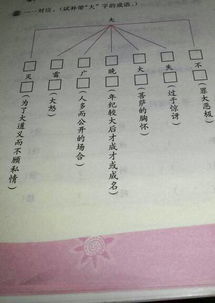 一一对应。(试补带“大”字的成语。)
大
□灭□(为了大道义而不顾私情)
□雷□(大怒)
□广□(人多而公开的场合)
□晚□(年纪较大后才成才或成名)
□大□(菩萨的胸怀)
□失□(过于惊讶)
□不□(罪大恶极)